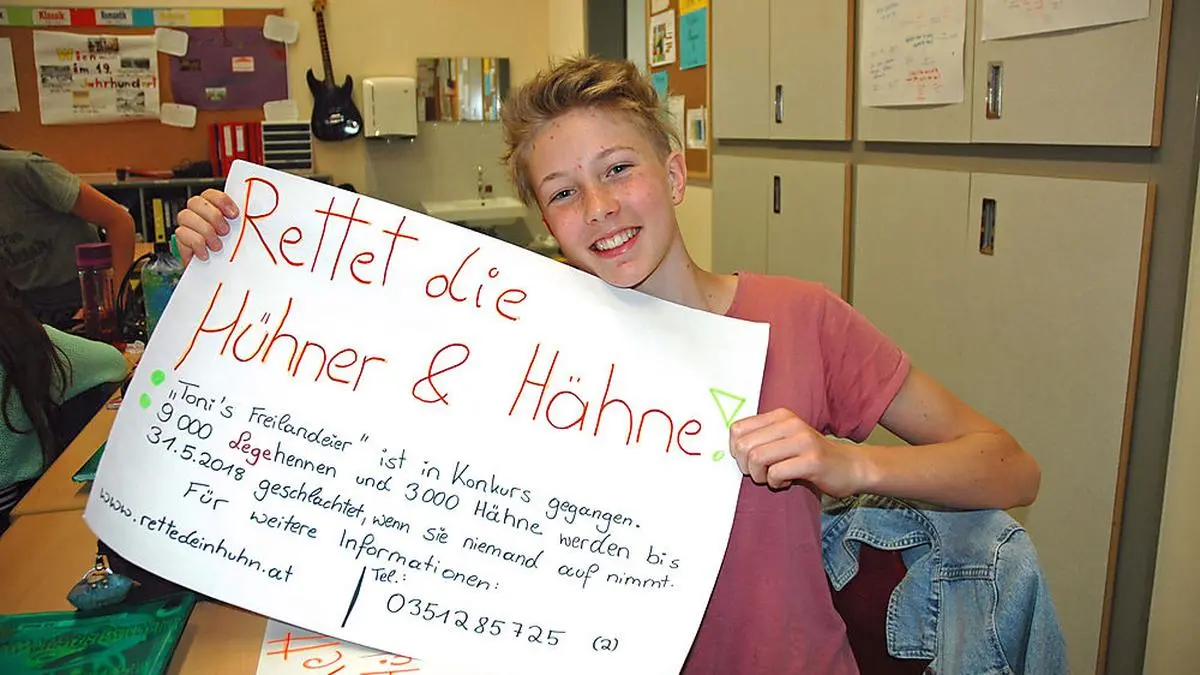 Klassik
Romantik
Wien
im 19.
Jahrhundert
Rettet die
Hühner & Hähne!
"Toni's Freilandeier" ist in Konkurs gegangen.
9 000 Legehennen und 3 000 Hähne werden bis
31.5.2018 geschlachtet, wenn sie niemand auf nimmt.
Für weitere Informationen:
www.rettedeinhuhn.at
Tel.:
0351285725 (2)